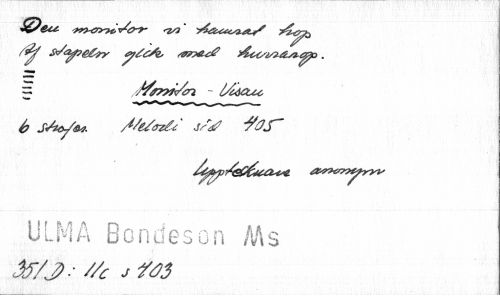 Den monitor vi hamrat hop
Af stapeln gick med hurrarop.
Monitor-Visan
6 strofer Melodi sid 405
Upptecknare anonym
ULMA Bondeson Ms
351 D: 11c s 403